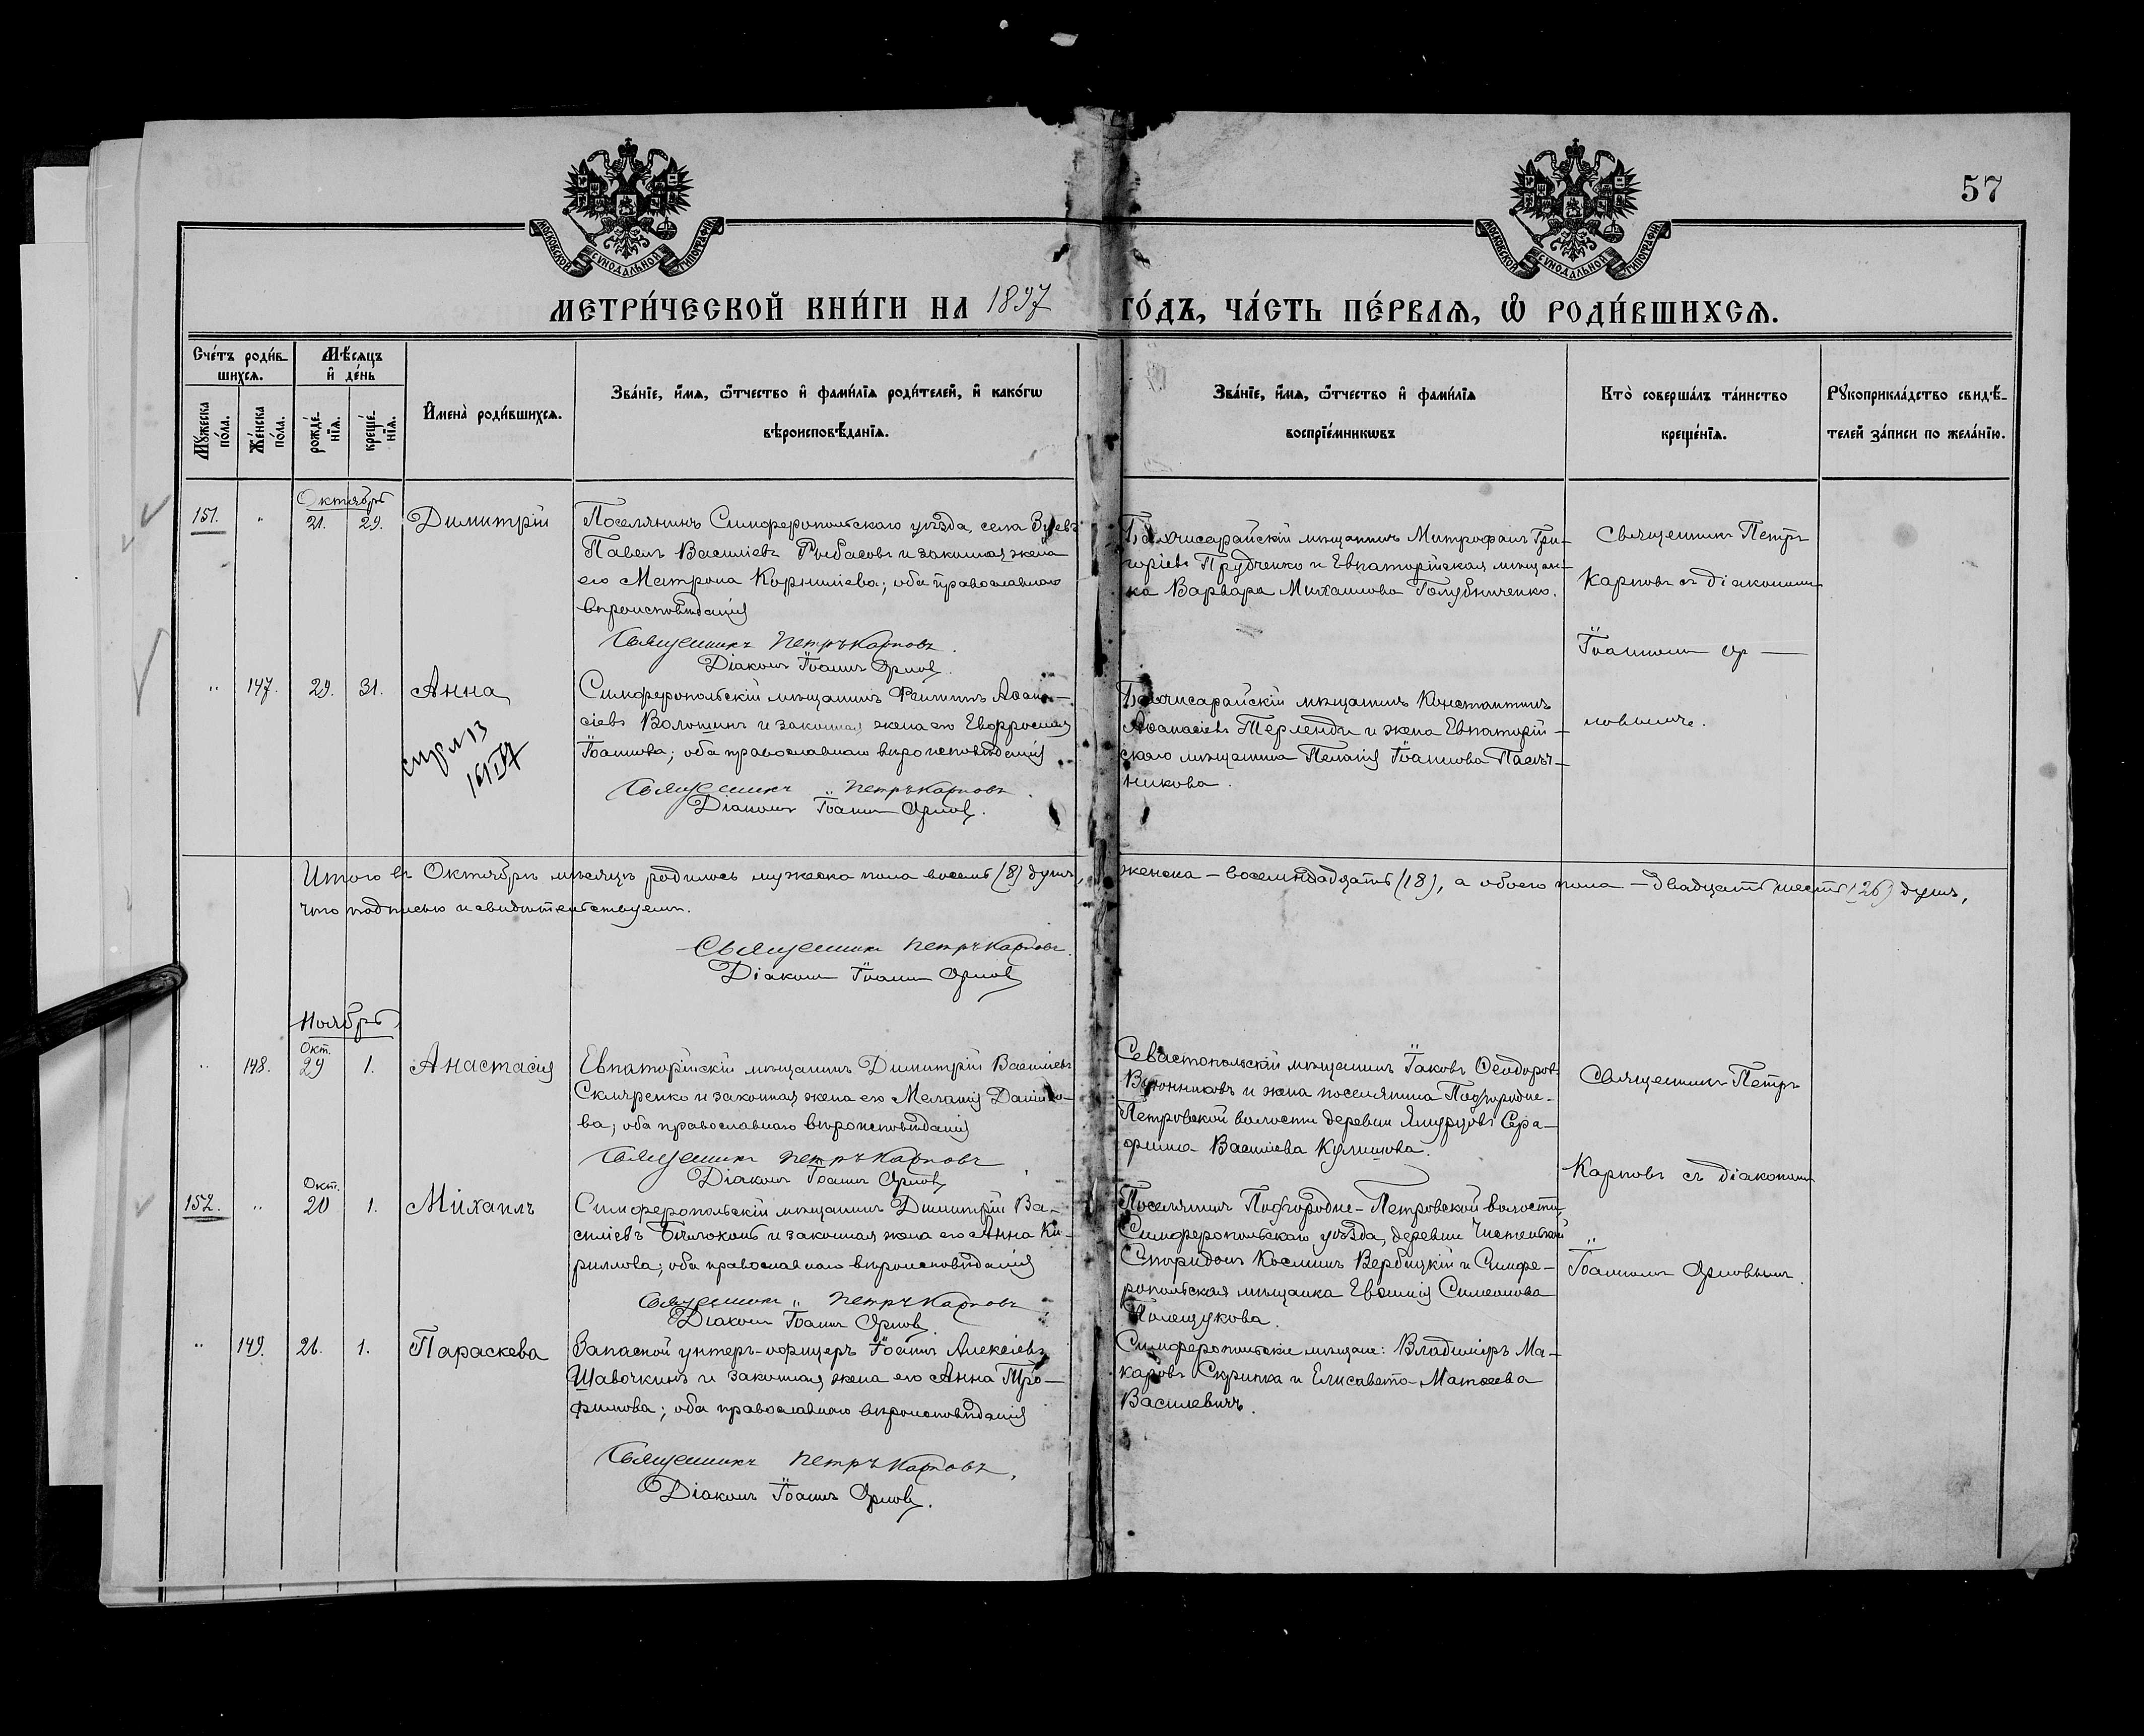 57
МОСКОВСКОЙ СУНОДАЛЬНОЙ ТИПОГРАФІИ
МОСКОВСКОЙ СУНОДАЛЬНОЙ ТИПОГРАФІИ
МЕТРИ́ЧЕСКОЙ КНИ́ГИ НА 1897 ГО́ДЪ, ЧА́СТЬ ПЕ́РВАѦ, Ѡ РОДИ́ВШИХСѦ.
Сче́тъ роди́в-
шихсѧ.
Мꙋжеска по́ла.
Же́нска по́ла.
Мѣ́сѧцъ
и҆ де́нь
рожде́-нїѧ.
креще́-нїѧ.
И҆мена̀ роди́вшихсѧ.
Зва́нїе, и҆́мѧ, ѻ҆́тчество и҆ фами́лїѧ роди́телей, и҆ како́гѡ
вѣроисповѣ́данїѧ.
Зва́нїе, и҆́мѧ, ѻ҆́тчество и҆ фами́лїѧ
воспрїе́мникѡвъ
Кто̀ соверша́лъ та́инство
креще́нїѧ.
Рꙋкоприкла́дство свидѣ́-
телей за́писи по жела́нїю.
Октябрь
151. " 21. 29. Димитрій
Поселянинъ Симферопольскаго уѣзда, села Зуевъ
Павелъ Василіевъ Рыбасовъ и законная жена
его Матрона Корниліева; оба православнаго
вѣроисповѣданія
Священникъ Петръ Карповъ.
Діаконъ Іоаннъ Орловъ.
Бахчисарайскій мѣщанинъ Митрофанъ Гри-
горіевъ Прудченко и Евпаторійская мѣщан-
ка Варвара Михаилова Голубниченко.
Священникъ Петръ
Карповъ съ діакономъ
Іоанномъ Ор —
ловымъ.
" 147. 29. 31. Анна
Симферопольскій мѣщанинъ Филиппъ Аѳана-
сіевъ Волошинъ и законная жена его Евфросинія
Іоаннова; оба православнаго вѣроисповѣданія
Священникъ Петръ Карповъ.
Діаконъ Іоаннъ Орловъ.
Бахчисарайскій мѣщанинъ Константинъ
Аѳанасіевъ Терленди и жена Евпаторій-
скаго мѣщанина Пелагія Іоаннова Пасѣч-
никова.
Итого въ Октябрѣ мѣсяцѣ родилось мужеска пола восемь (8) душъ, женска — восемнадцать (18), а обоего пола — двадцать шесть (26) душъ,
что подписью и свидѣтельствуемъ.
Священникъ Петръ Карповъ.
Діаконъ Іоаннъ Орловъ
Ноябрь
Окт.
" 148. 29 1. Анастасія
Евпаторійскій мѣщанинъ Димитрій Василіевъ
Скляренко и законная жена его Меланія Даніило-
ва; оба православнаго вѣроисповѣданія
Священникъ Петръ Карповъ
Діаконъ Іоаннъ Орловъ
Севастопольскій мѣщанинъ Іаковъ Ѳеодоровъ
и жена поселянина Подгородне-
Петровской волости деревни Ямурцовъ Сера-
фима Василіева Кулишова.
Священникъ Петръ
Карповъ съ діакономъ
Іоанномъ Орловымъ.
Окт.
152. " 20 1. Михаилъ
Симферопольскій мѣщанинъ Димитрій Ва-
силіевъ Бѣлоконь и законная жена его Анна Ки-
риллова; оба православнаго вѣроисповѣданія
Священникъ Петръ Карповъ.
Діаконъ Іоаннъ Орловъ.
Поселянинъ Подгородне-Петровской волости,
Симферопольскаго уѣзда, деревни Чистенькой
Спиридонъ Косминъ Вербицкій и Симфе-
ропольская мѣщанка Евѳимія Симеонова
Полещукова.
" 149. 26. 1. Параскева
Запасной унтеръ-офицеръ Іоаннъ Алексіевъ
Шавочкинъ и законная жена его Анна Тро-
фимова; оба православнаго вѣроисповѣданія
Священникъ Петръ Карповъ.
Діаконъ Іоаннъ Орловъ.
Симферопольскіе мѣщане: Владиміръ Ма-
каровъ Скрипка и Елисавета Матѳеева
Василевичъ.